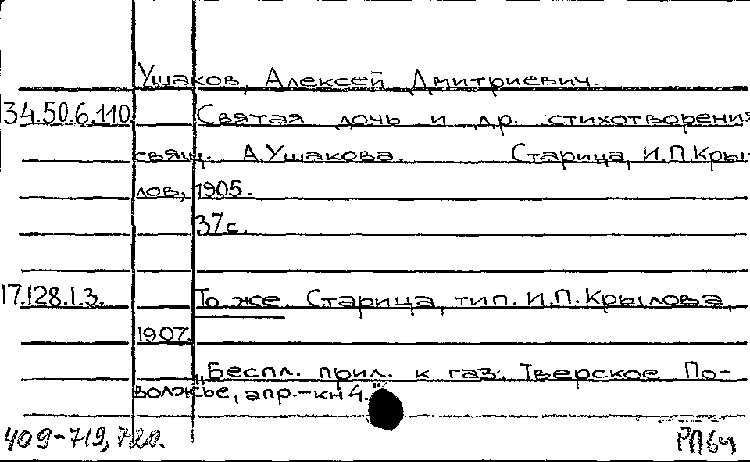 Ушаков, Алексей Дмитриевич.
34.50.6.110 Святая дочь и др. стихотворения
свящ. А.Ушакова. Старица, И.П.Кры-
лов, 1905.
37с.
17.128.1.3. То же. Старица, тип. И.П.Крылова,
1907.
„Беспл. прил. к газ. Тверское По-
волжье, апр.-кн 4."
409-719, 720. РП64